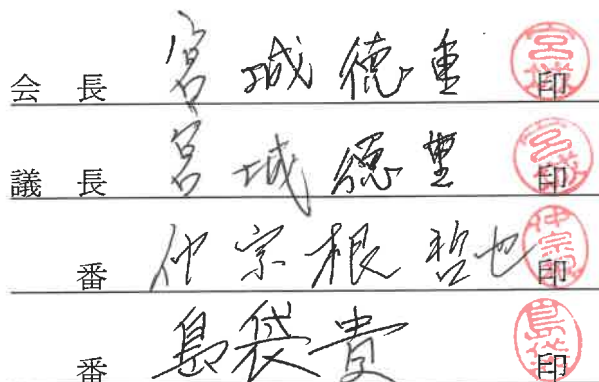 会 長 宮城 徳重 印
議 長 宮城 徳重 印
番 仲宗根 哲也 印
番 島袋 貴 印